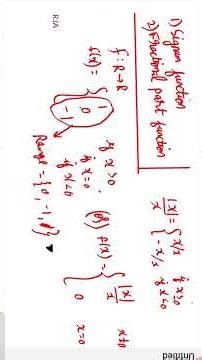 1) Signum function
2) Fractional part function
f: R→R
f(x) = { 1 if x>0
0 if x=0
-1 if x<0
Range = {0, -1, 1}
|x|/x = { x/x if x≥0
-x/x if x<0
(or) f(x) = { |x|/x x≠0
0 x=0
RJA
Untitled